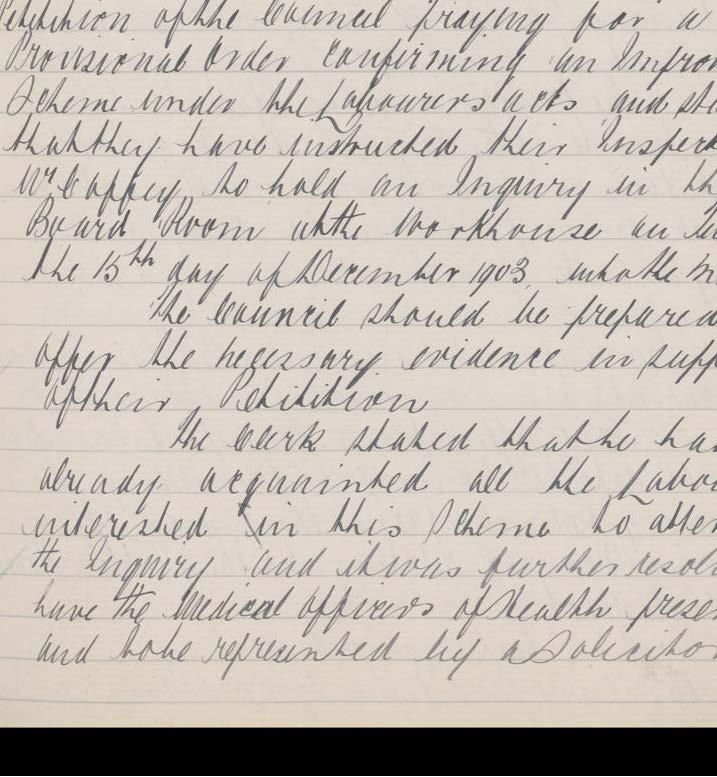 Petitition of the Council praying for a
Provisional Order confirming an Improv
Scheme under the Labourers acts and sta
that they have instructed their Inspec
Mr Caffey to hold an Inquiry in th
Board Room at the Workhouse on
the 15th day of December 1903,
The Council should be prepared
offer the necessary evidence in supp
of their Petitition
The Clerk stated that he ha
already acquainted all the Labou
interested in this Scheme to atten
the Inquiry and it was further resol
have the Medical Officers of Health prese
and to be represented by a Solicitor